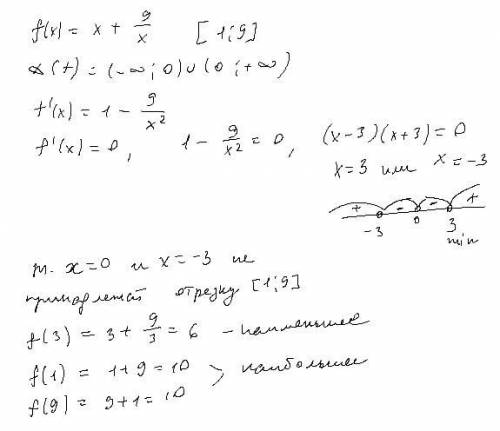 f(x) = x + 9/x [1; 9]
D(f) = (-∞; 0) ∪ (0; +∞)
f'(x) = 1 - 9/x²
f'(x) = 0, 1 - 9/x² = 0, (x-3)(x+3) = 0
x=3 или x = -3
+ - - +
-3 0 3
min
т. x=0 и x=-3 не
принадлежат отрезку [1; 9]
f(3) = 3 + 9/3 = 6 - наименьшее
f(1) = 1+9 = 10 > наибольшее
f(9) = 9+1 = 10